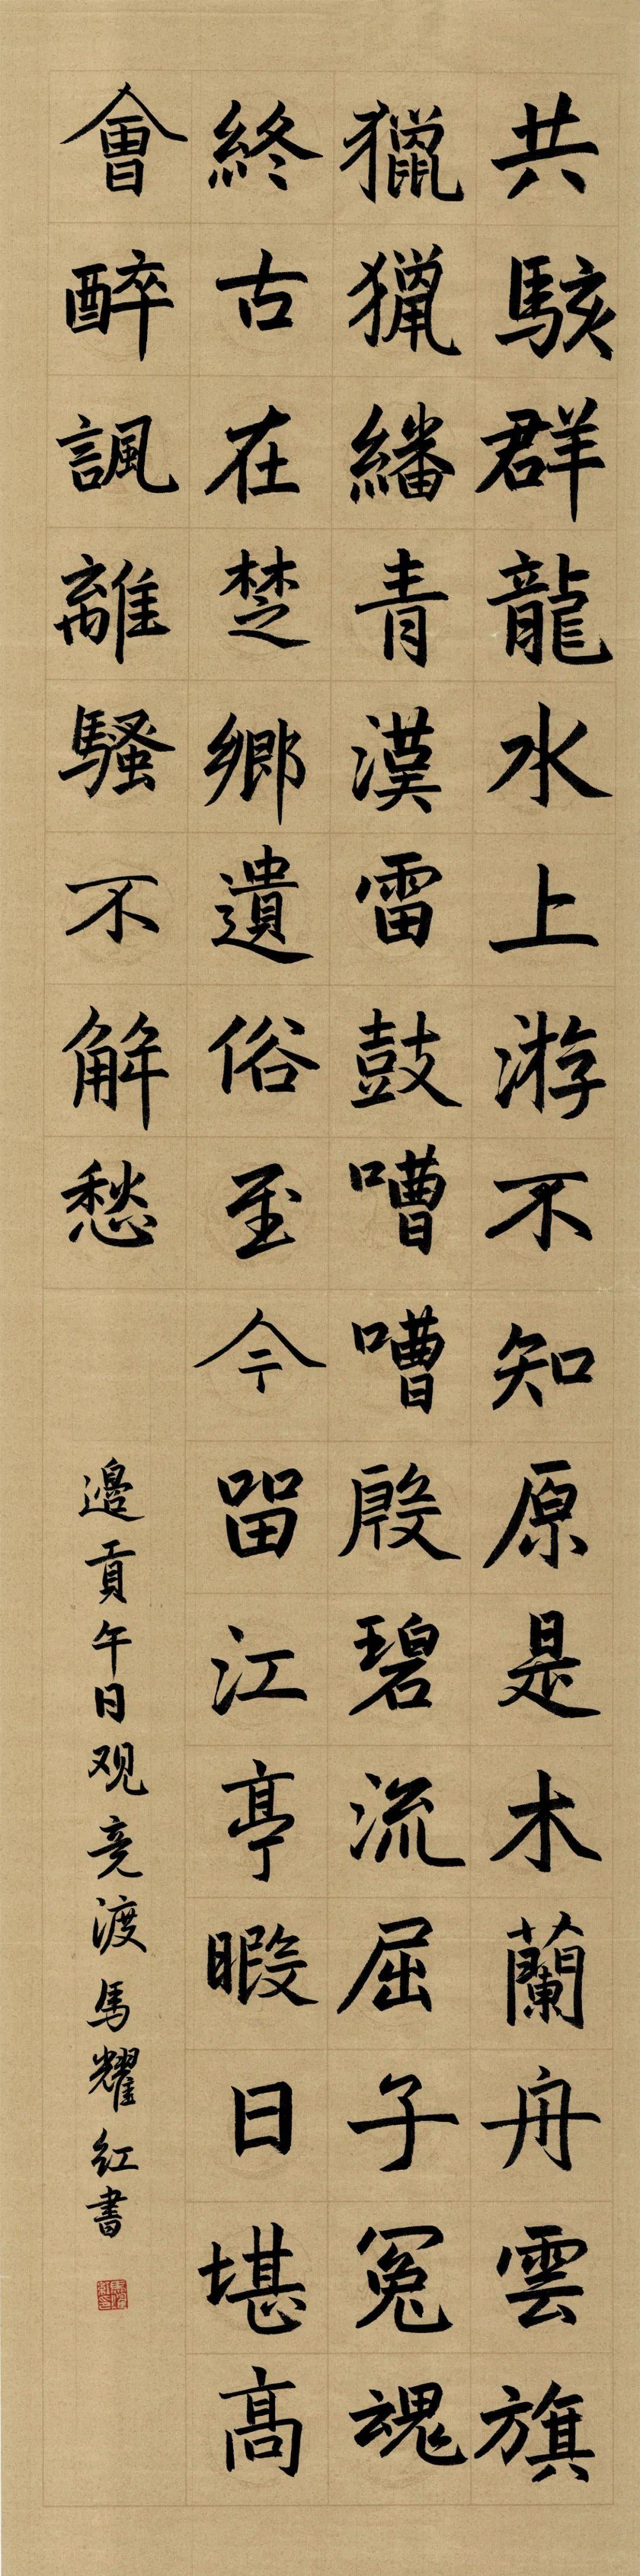 共駭群龍水上游不知原是木蘭舟雲旗
獵獵繙青漢雷鼓嘈嘈殷碧流屈子冤魂
終古在楚鄉遺俗至今留江亭暇日堪高
會醉諷離騷不解愁
邊貢午日观竞渡馬耀红書